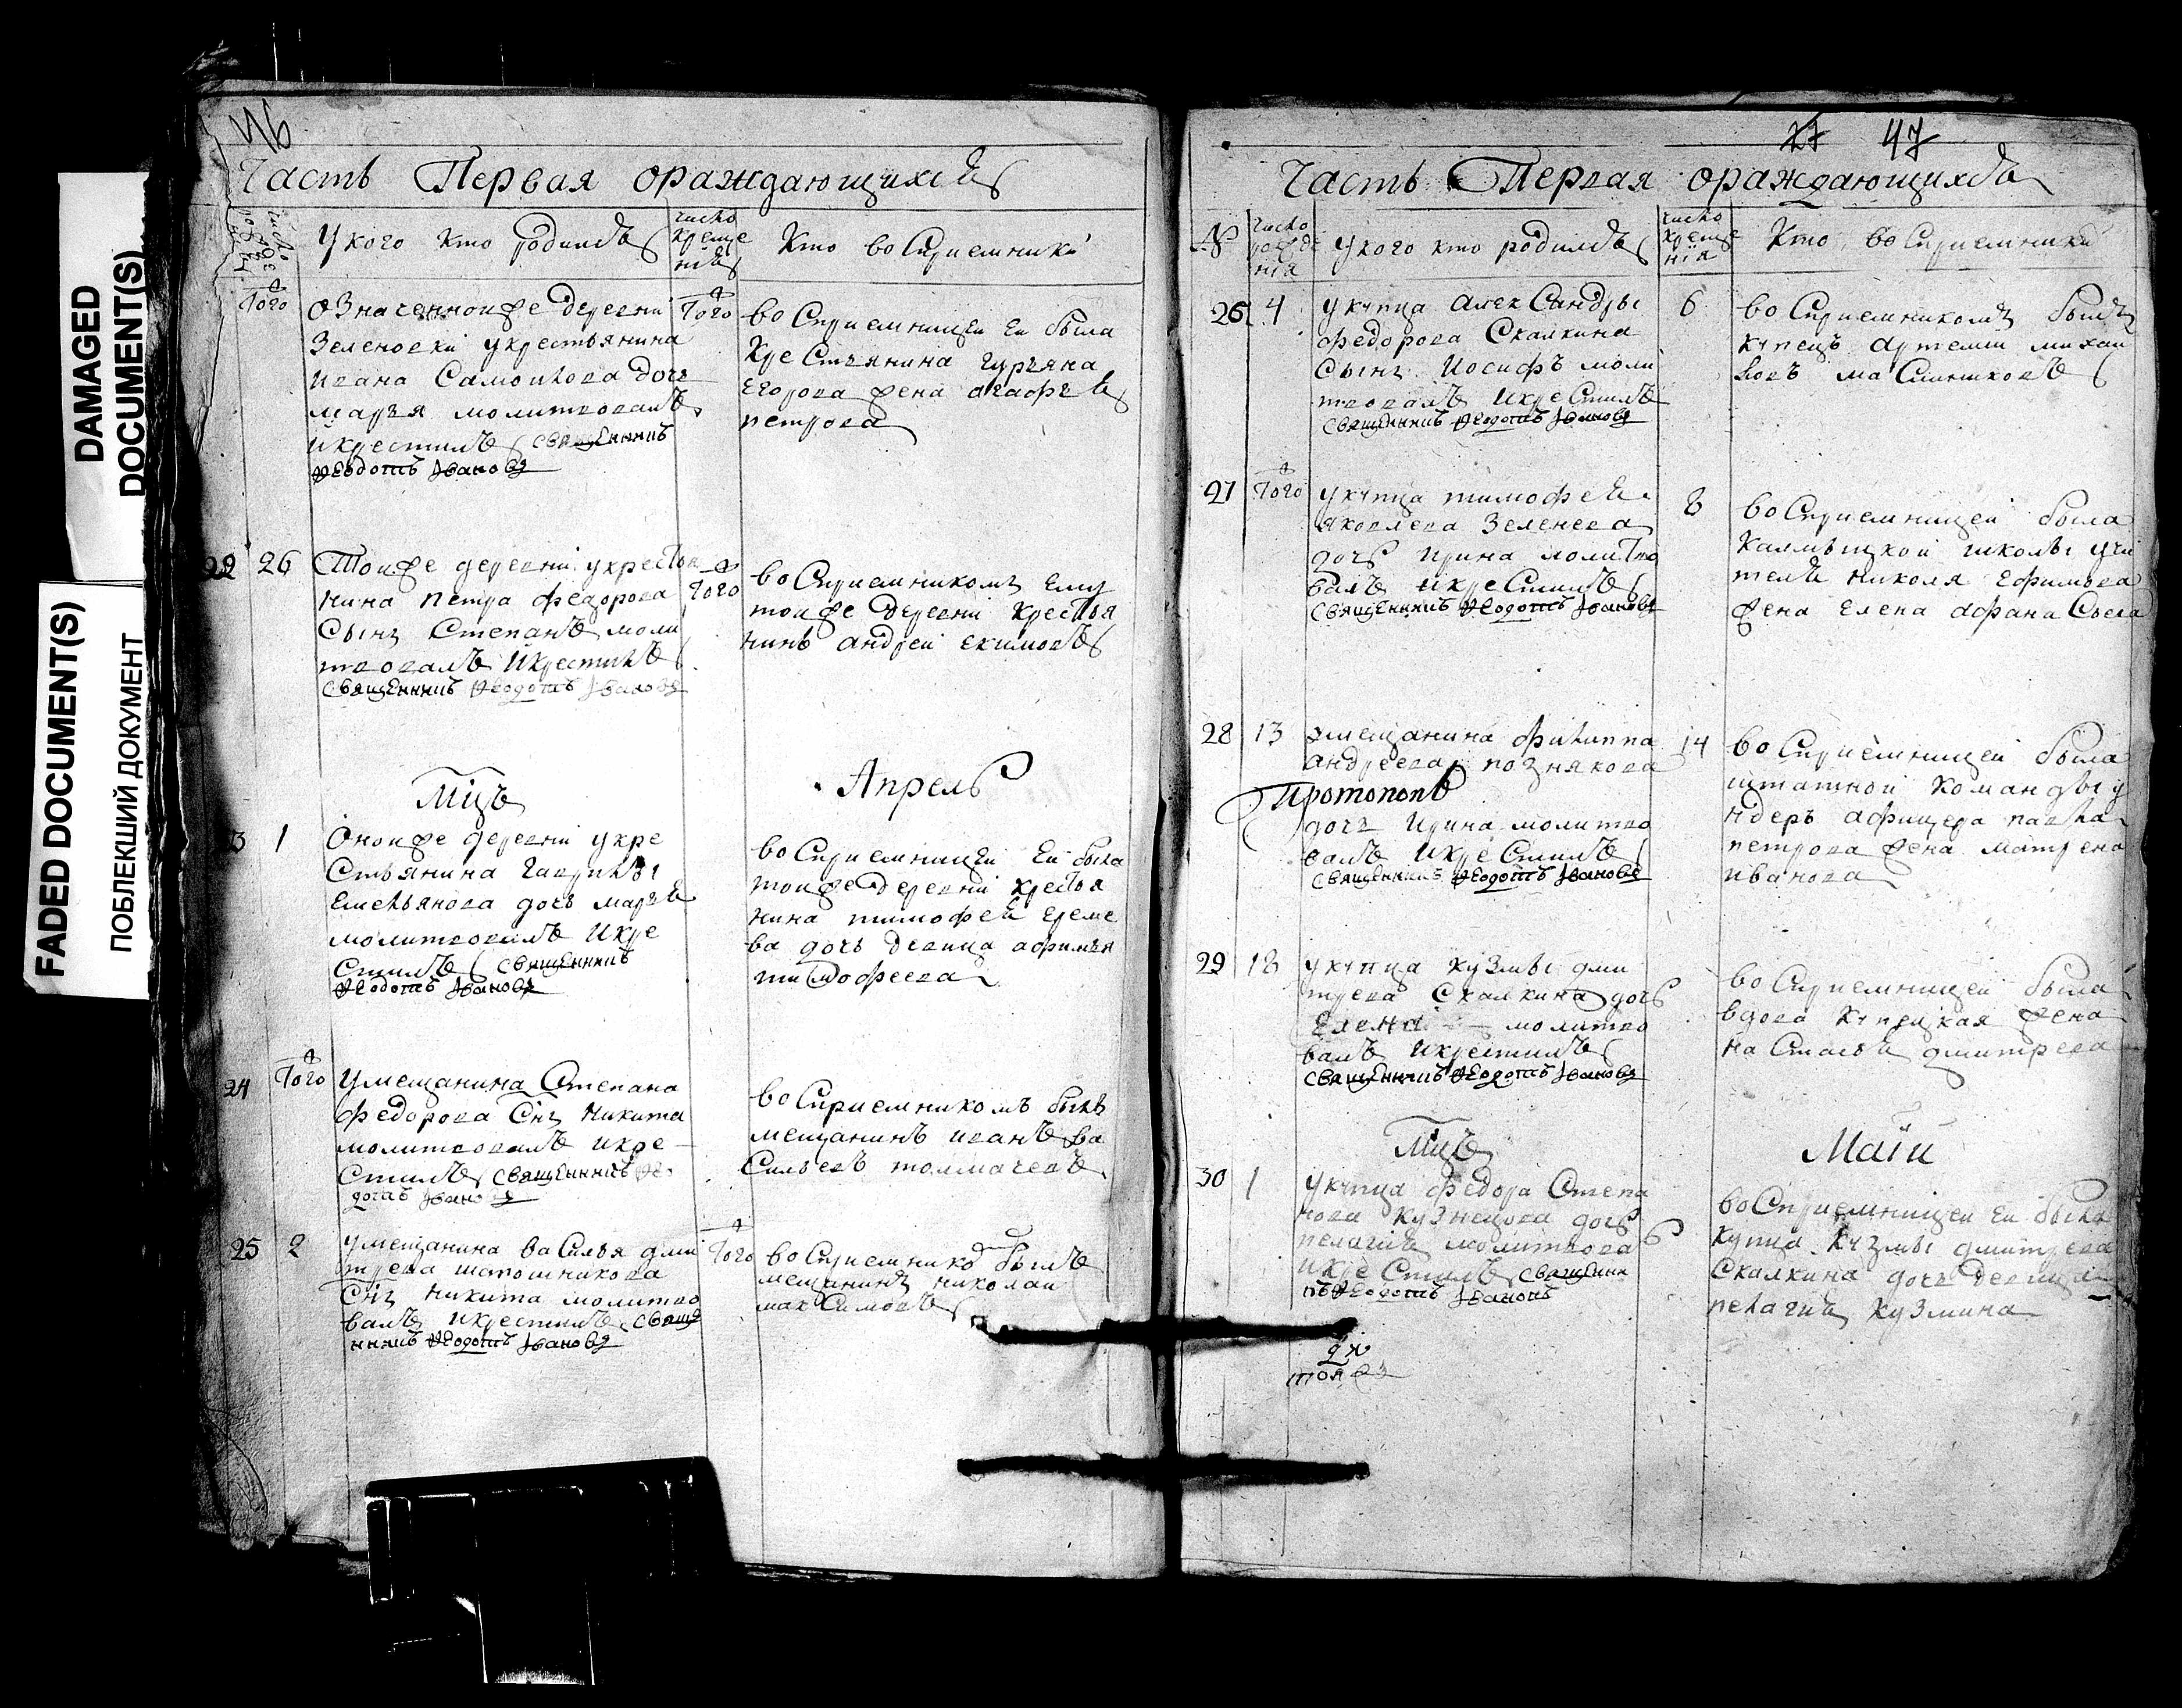 DAMAGED
DOCUMENT(S)
FADED DOCUMENT(S)
ПОБЛЕКШИЙ ДОКУМЕНТ
46
Часть Первая ораждающихсѣ
число рожде
У кого кто родилсѣ
число
креще
ниѣ
Кто восприемники
Того
Означенной же деревни
Зеленовки укрестьянина
Ивана Самойлова дочь
Марья молитвовалъ
и крестилъ священникъ
Ѳеодотъ Іванов
Того
восприемницей ей была
Крестьянина Гурьяна
Егорова жена Агафьѣ
петрова
22
26
Тоиже деревни укрестья
нина Петра Федорова
Сынъ Степанъ моли
твовалъ и крестилъ
священникъ Ѳеодотъ Іванов
Того
восприемникомъ ему
тоиже деревни крестья
нинъ андрей екимовъ
Мцъ
Апрель
3
1
Оноиже деревни укре
стьянина Гаврилы
Емельянова дочь Марьѣ
молитвовалъ и кре
стилъ священникъ
Ѳеодотъ Іванов
восприемницей ей была
тоиже деревни крестья
нина тимофеѣ ереме
ва дочь девица афимья
тимофеева
24
Того
Умещанина Степана
Федорова Снъ Никита
молитвовалъ и кре
стилъ священникъ Ѳео
дотъ Іванов
восприемникомъ былъ
мещанинъ иванъ ва
сильевъ толмачевъ
25
2
Умещанина василья дми
трева шапошникова
Снъ Никита молитво
валъ и крестилъ свяще
нникъ Ѳеодотъ Іванов
Того
восприемникомъ былъ
мещанинъ николаи
максимовъ
27 47
Часть Первая ораждающихсѣ
№
число
рожде
нія
У кого кто родилсѣ
число
креще
нія
Кто восприемники
26
4
укупца Александры
Федорова Скалкина
Сынъ Иосифъ моли
твовалъ и крестилъ
священникъ Ѳеодотъ Іванов
6
восприемникомъ былъ
купецъ Артемеи михаи
ловъ масленниковъ
27
Того
укупца тимофеѣ
яковлева Зеленева
дочь Ирина молитво
валъ и крестилъ
священникъ Ѳеодотъ Іванов
8
восприемницей была
Калмыцкой школы учи
телѣ Николя Ефимова
жена Елена Афанасьева
28
13
умещанина Филиппа
андреева познякова
Протопопъ
дочь Ирина молитво
валъ и крестилъ
священникъ Ѳеодотъ Іванов
14
восприемницей была
штатной команды у
ндеръ афицера павла
петрова жена матрена
иванова
29
18
укупца Кузмы дми
трева Скалкина дочь
Елена молитво
валъ и крестилъ
священникъ Ѳеодотъ Іванов
восприемницей была
вдова купецкая жена
настасьѣ дмитрева
Мцъ
Маіи
30
1
укупца Федора Степа
нова Кузнецова дочь
пелагиѣ молитвова
и крестилъ священни
къ Ѳеодотъ Іванов
6
восприемницей ей была
купца Кузмы дмитрева
Скалкина дочь девица
пелагиѣ Кузмина